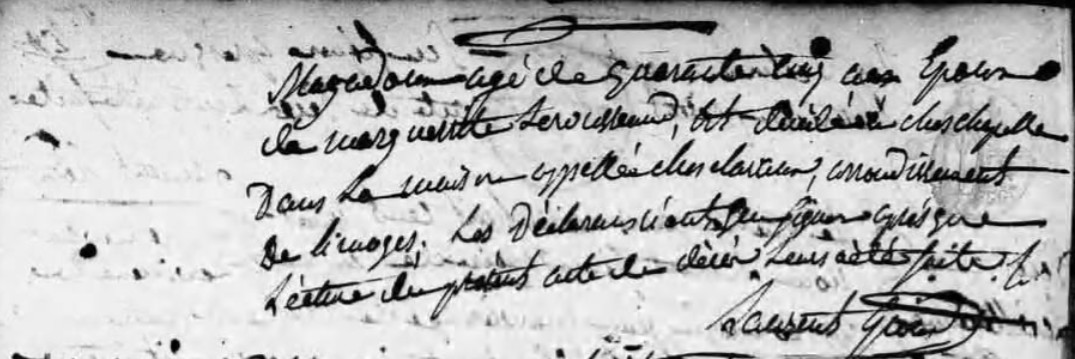 agé de quarante cinq ans Epoux
de marguerite Lerousseaud, est décédé à chés chapelle
Dans La maison appellée chés, arrondissement
De limoges. Les Déclarans n'ont sçu signer après que
Lecture du présent acte de décès Leurs a été faite.
Laurent